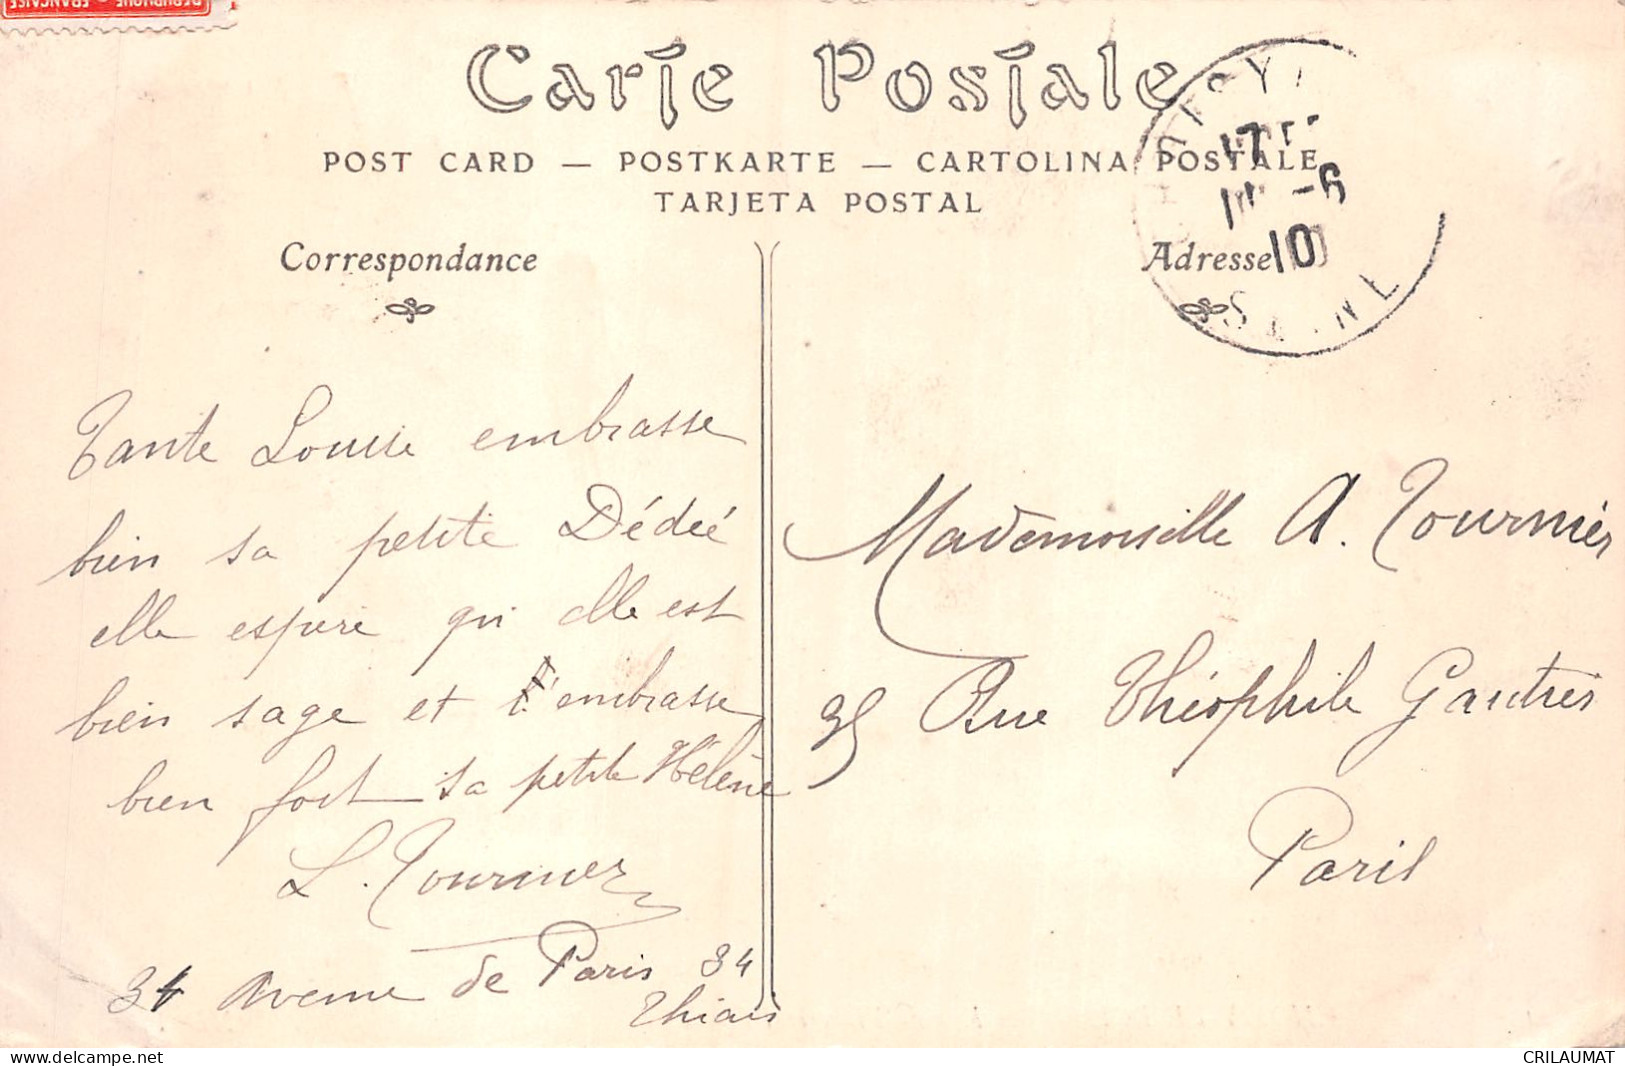 RÉPUBLIQUE FRANÇAISE
Carte Postale
POST CARD — POSTKARTE — CARTOLINA POSTALE
TARJETA POSTAL
Correspondance
Adresse
17
-6
10
SEINE
Tante Louise embrasse
bien sa petite Dédée
elle espere qui elle est
bien sage et l'embrasse
bien fort sa petite Hélène
L. Tournier
34 Avenue de Paris 34
Thiais
Mademoiselle A. Tournier
35 Rue Théophile Gautier
Paris
CRILAUMAT